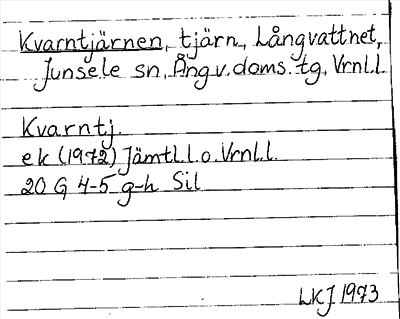 Kvarntjärnen, tjärn, Långvattnet,
Junsele sn, Ång.v.doms.tg, Vrnl.l.
Kvarntj.
ek (1972) Jämtl.l.o.Vrnl.l.
20 G 4-5 g-h Sil
LKJ 1973